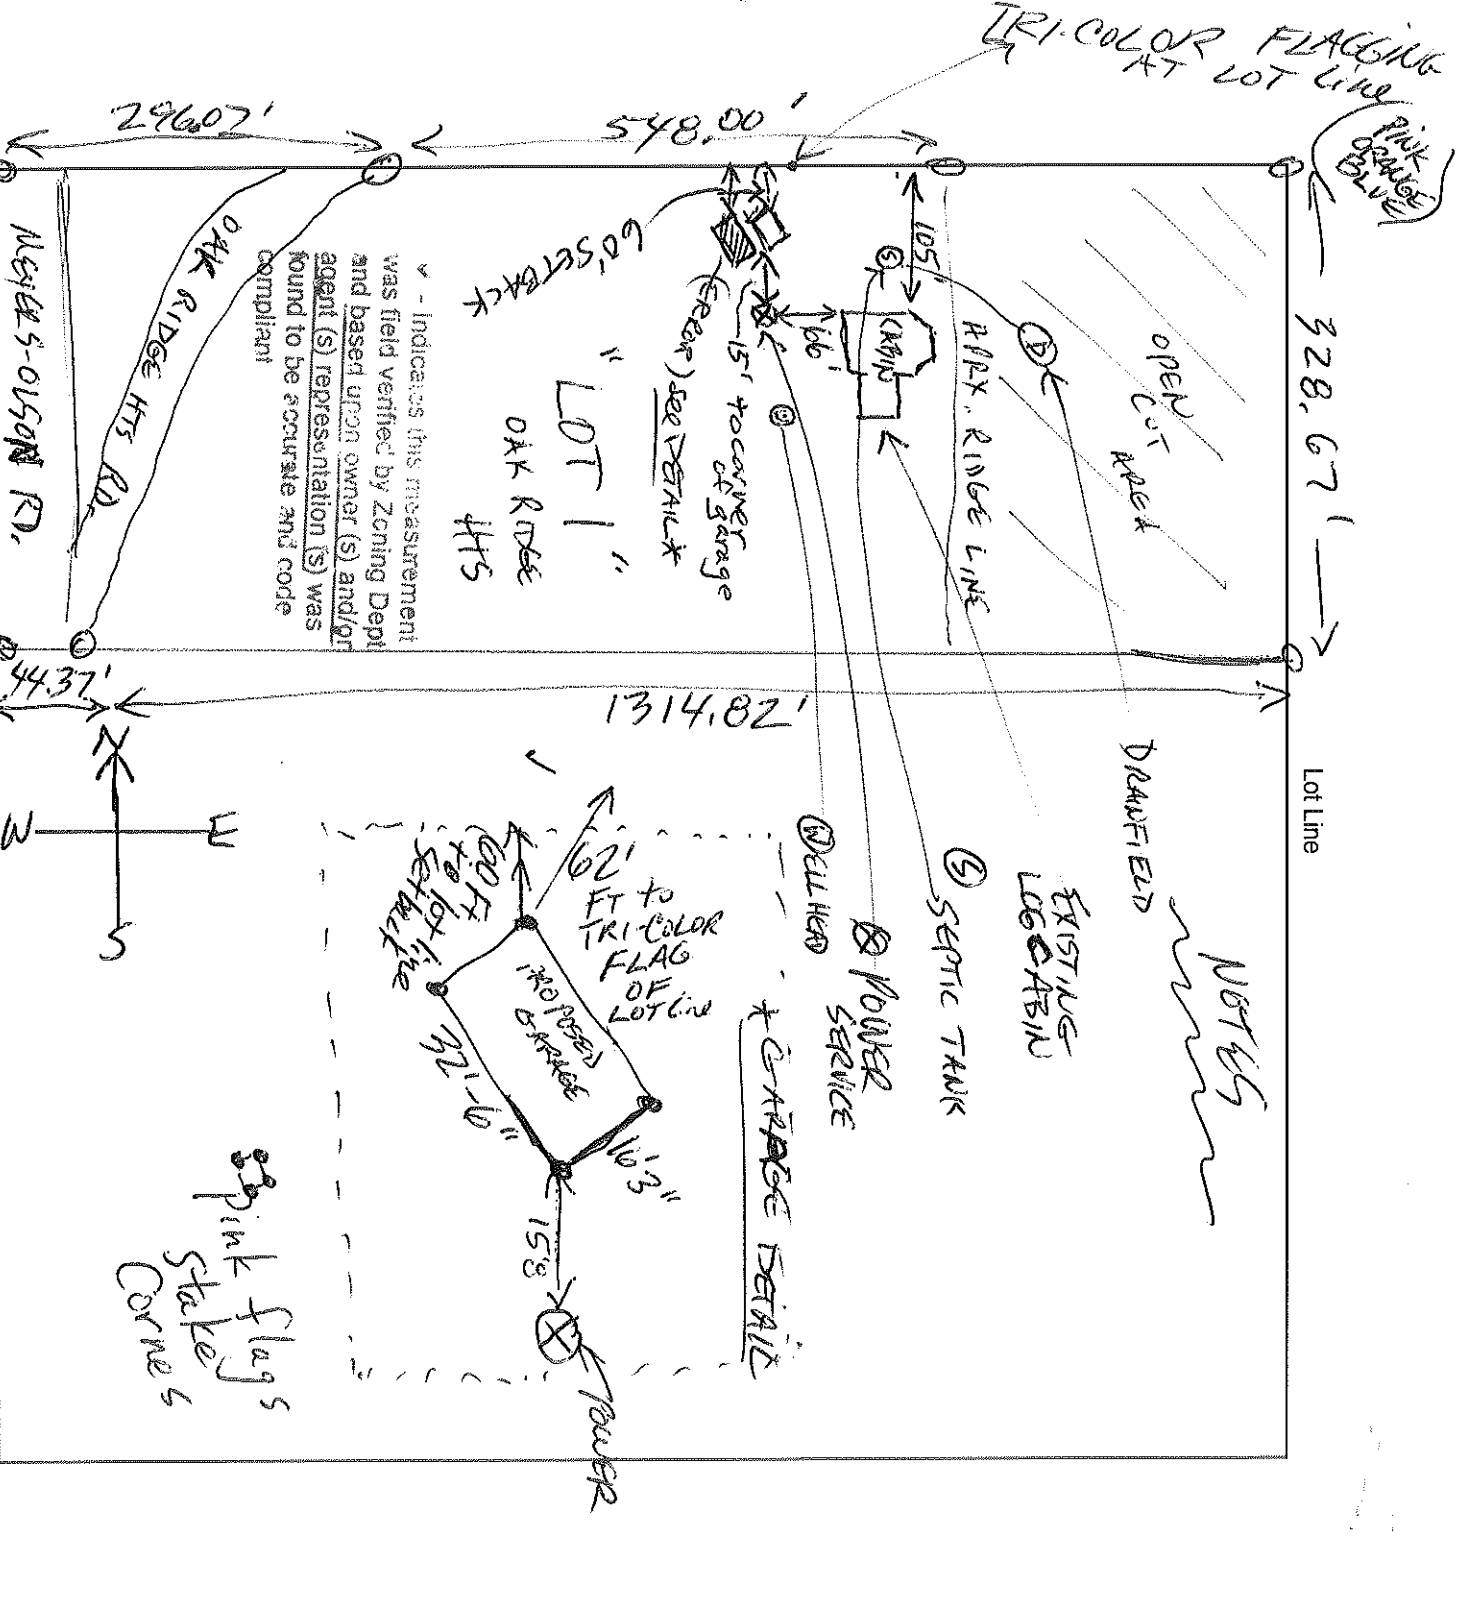 TRI-COLOR FLAGGING
AT LOT LINE
PINK
ORANGE
BLUE
296.07'
548.00'
328.67'
Lot Line
OPEN
CUT
AREA
APPX. RIDGE LINE
105'
S
D
CABIN
66'
W
60' SETBACK
15' to corner
of garage
(ERROR) see DETAIL*
"LOT 1"
OAK RIDGE
HTS
✓ - indicates this measurement
was field verified by Zoning Dept
and based upon owner (s) and/or
agent (s) representation (s) was
found to be accurate and code
compliant
OAK RIDGE HTS RD.
MEYERS-OLSON RD.
44.37'
1314.82'
N
E
W
S
NOTES
DRAINFIELD
EXISTING
LOG CABIN
S SEPTIC TANK
POWER
SERVICE
WELL HEAD
* GARAGE DETAIL
✓
62'
FT to
TRI-COLOR
FLAG
OF
LOT Line
60 Ft
to lot line
setback
PROPOSED
GARAGE
32'-6"
16'3"
158
POWER
pink flags
stake
Corners